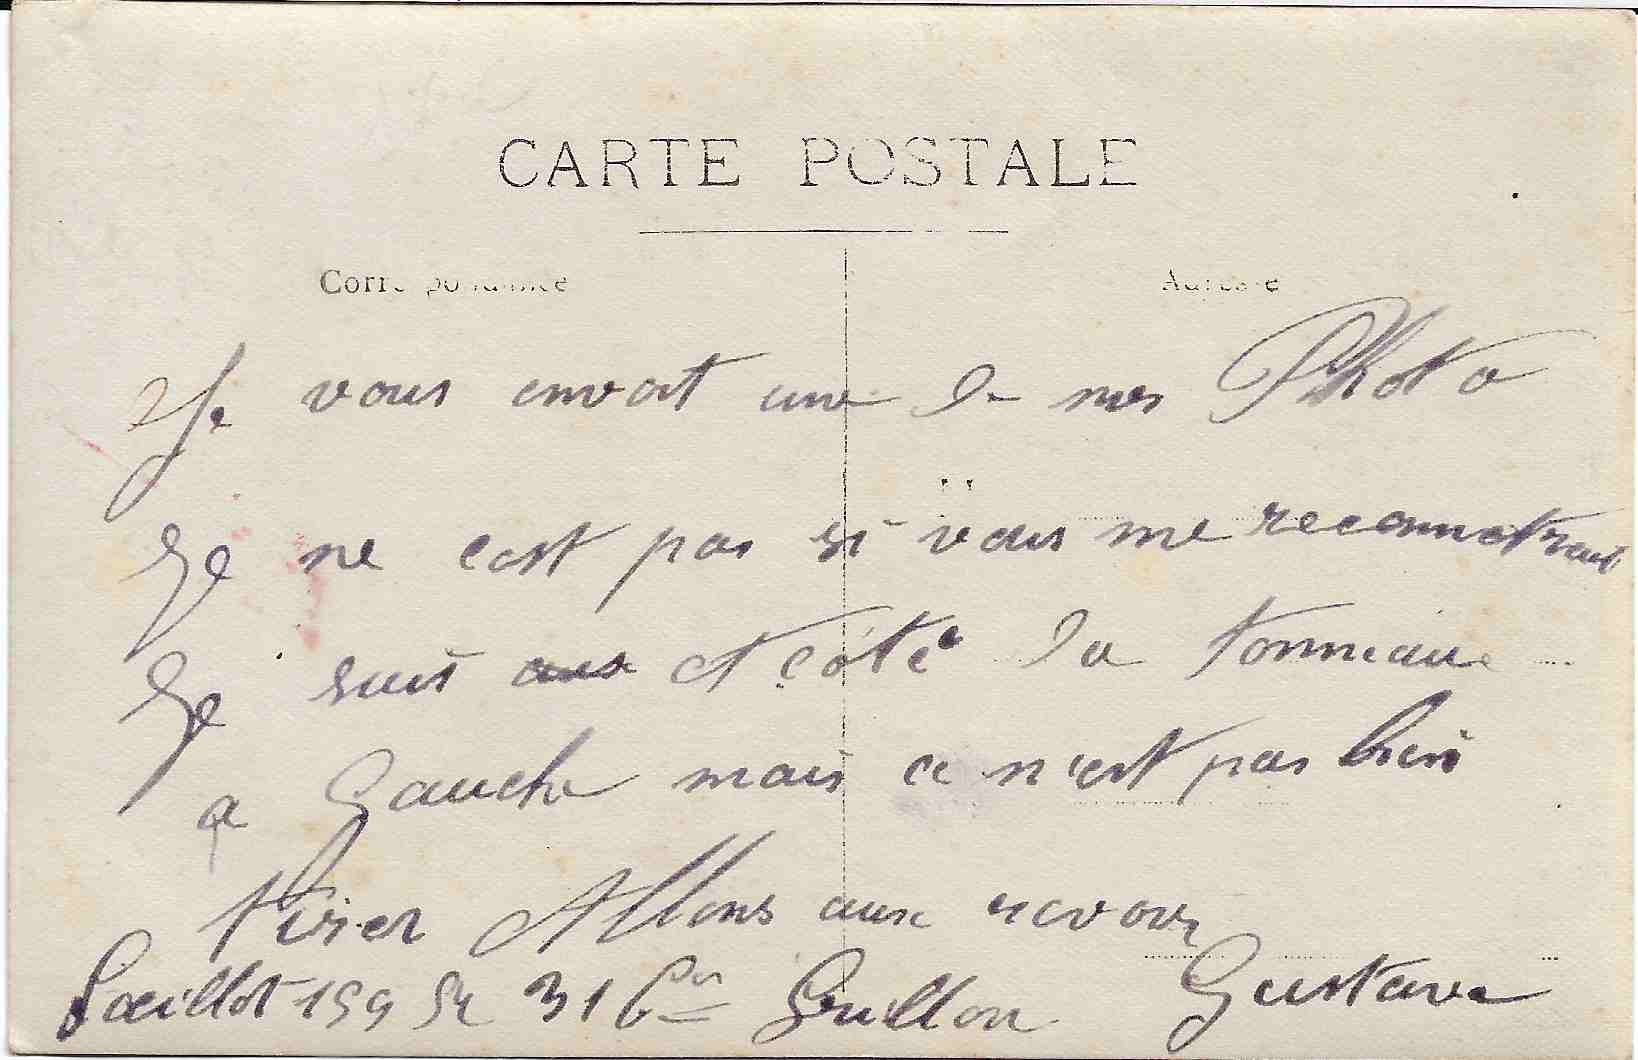 CARTE POSTALE
Correspondance Adresse
Je vous envoit une de mes Photo
Je ne cest pas si vous me reconnetrais
Je suis aux A côté du tonneaux
a Gauche mais ce n'est pas bien
tirer Allons aux revoir
31 Gustave